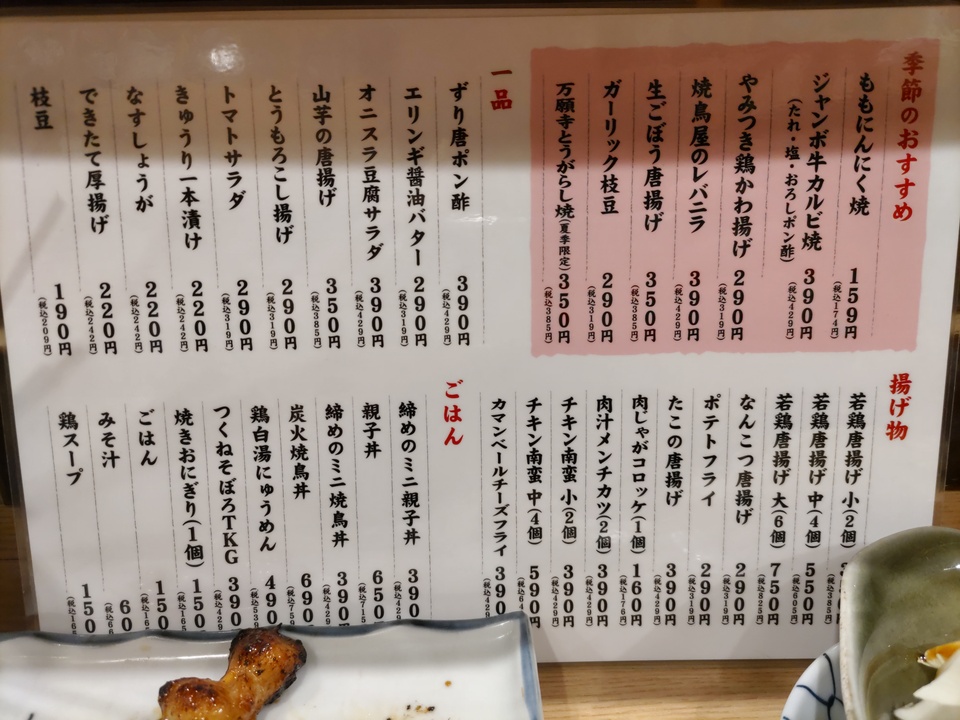 季節のおすすめ
ももにんにく焼 159円(税込174円)
ジャンボ牛カルビ焼 390円(税込429円)
(たれ・塩・おろしポン酢)
やみつき鶏かわ揚げ 290円(税込319円)
焼鳥屋のレバニラ 390円(税込429円)
生ごぼう唐揚げ 350円(税込385円)
ガーリック枝豆 290円(税込319円)
万願寺とうがらし焼(夏季限定) 350円(税込385円)
一品
ずり唐ポン酢 390円(税込429円)
エリンギ醤油バター 290円(税込319円)
オニスラ豆腐サラダ 390円(税込429円)
山芋の唐揚げ 350円(税込385円)
とうもろこし揚げ 290円(税込319円)
トマトサラダ 290円(税込319円)
きゅうり一本漬け 220円(税込242円)
なすしょうが 220円(税込242円)
できたて厚揚げ 220円(税込242円)
枝豆 190円(税込209円)
揚げ物
若鶏唐揚げ 小(2個)
若鶏唐揚げ 中(4個) 550円(税込605円)
若鶏唐揚げ 大(6個) 750円(税込825円)
なんこつ唐揚げ 290円(税込319円)
ポテトフライ 290円(税込319円)
たこの唐揚げ 390円(税込429円)
肉じゃがコロッケ(1個) 160円(税込176円)
肉汁メンチカツ(2個) 390円(税込429円)
チキン南蛮 小(2個) 390円(税込429円)
チキン南蛮 中(4個) 590円(税込649円)
カマンベールチーズフライ 390円(税込429
ごはん
締めのミニ親子丼 390
親子丼 650
締めのミニ焼鳥丼 390
炭火焼鳥丼 690
鶏白湯にゅうめん 490
つくねそぼろTKG 390
焼きおにぎり(1個) 150
ごはん 150
みそ汁 60
鶏スープ 150